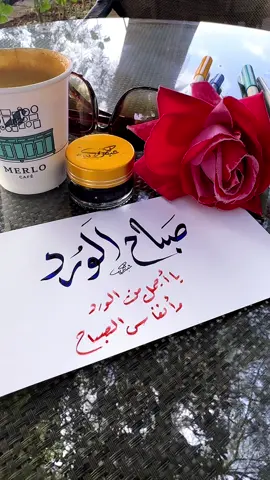 MERLO
CAFÉ
صَبَاح الوَرد
يا أجمل من الورد
وأنفاس الصباح